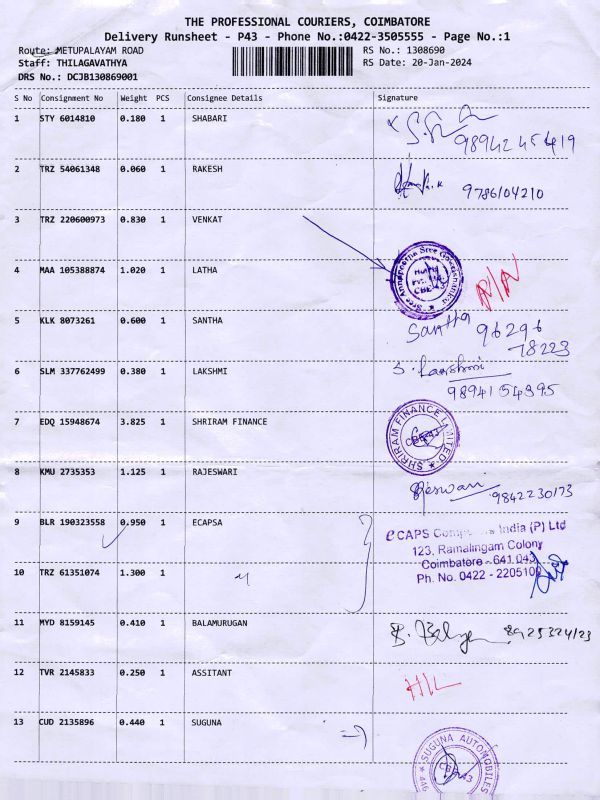 THE PROFESSIONAL COURIERS, COIMBATORE
Delivery Runsheet - P43 - Phone No.:0422-3505555 - Page No.:1
Route: METUPALAYAM ROAD RS No.: 1308690
Staff: THILAGAVATHYA RS Date: 20-Jan-2024
DRS No.: DCJB130869001
S No Consignment No Weight PCS Consignee Details Signature
1 STY 6014810 0.180 1 SHABARI
98942 45419
2 TRZ 54061348 0.060 1 RAKESH
9786104210
3 TRZ 220600973 0.830 1 VENKAT
4 MAA 105388874 1.020 1 LATHA
5 KLK 8073261 0.600 1 SANTHA Santha 96296
78223
6 SLM 337762499 0.380 1 LAKSHMI S. Lakshmi
9894154395
7 EDQ 15948674 3.825 1 SHRIRAM FINANCE SHRIRAM FINANCE LIMITED CBE-43
8 KMU 2735353 1.125 1 RAJESWARI
9842230173
9 BLR 190323558 0.950 1 ECAPSA eCAPS India (P) Ltd
123, Ramalingam Colony
Coimbatore - 641 043
10 TRZ 61351074 1.300 1 Ph. No. 0422 - 2205100
11 MYD 8159145 0.410 1 BALAMURUGAN 8925324123
12 TVR 2145833 0.250 1 ASSITANT
13 CUD 2135896 0.440 1 SUGUNA
SUGUNA AUTOMOBILES